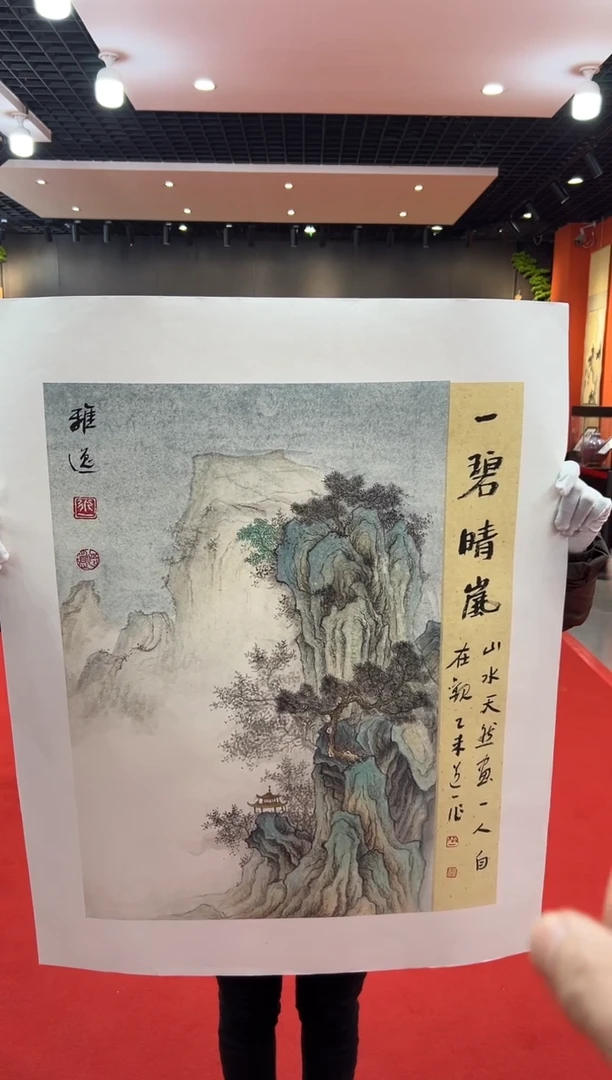 一碧晴嵐
山水天然畫一人自
在觀乙未道一作
雅逸